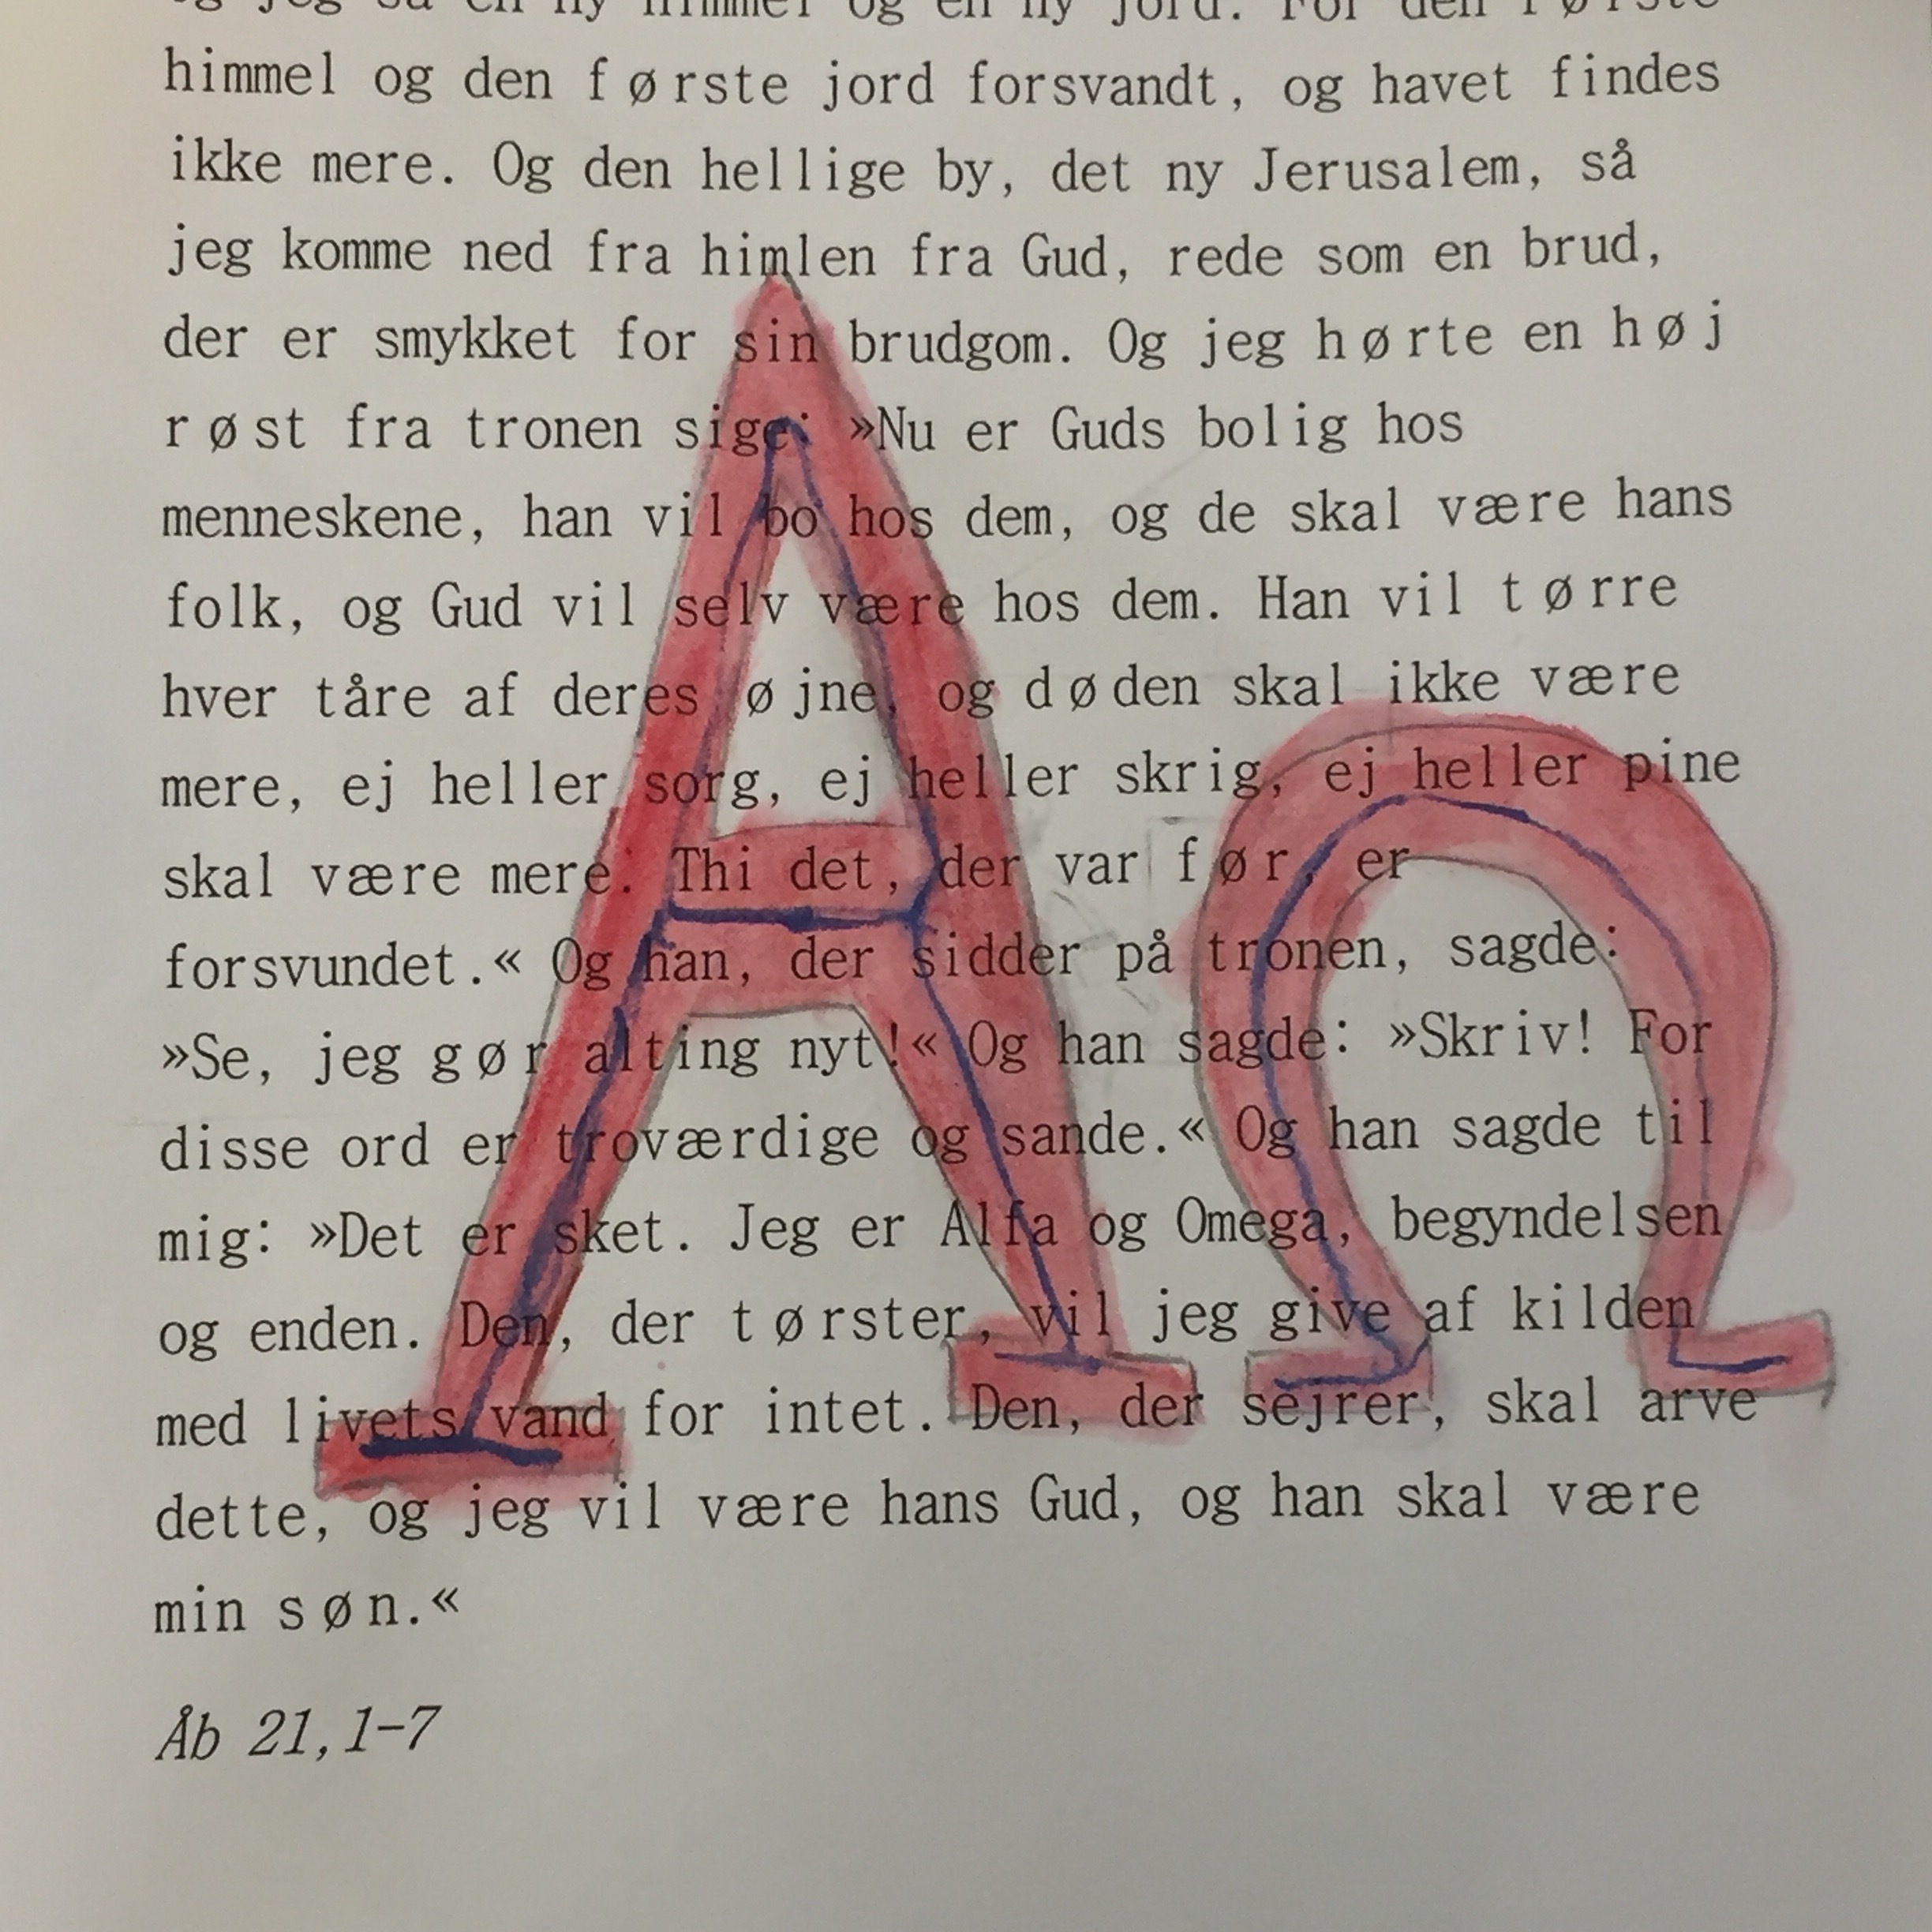 og jeg så en ny himmel og en ny jord. For den første
himmel og den første jord forsvandt, og havet findes
ikke mere. Og den hellige by, det ny Jerusalem, så
jeg komme ned fra himlen fra Gud, rede som en brud,
der er smykket for sin brudgom. Og jeg hørte en høj
røst fra tronen sige: »Nu er Guds bolig hos
menneskene, han vil bo hos dem, og de skal være hans
folk, og Gud vil selv være hos dem. Han vil tørre
hver tåre af deres øjne, og døden skal ikke være
mere, ej heller sorg, ej heller skrig, ej heller pine
skal være mere. Thi det, der var før, er
forsvundet.« Og han, der sidder på tronen, sagde:
»Se, jeg gør alting nyt!« Og han sagde: »Skriv! For
disse ord er troværdige og sande.« Og han sagde til
mig: »Det er sket. Jeg er Alfa og Omega, begyndelsen
og enden. Den, der tørster, vil jeg give af kilden
med livets vand for intet. Den, der sejrer, skal arve
dette, og jeg vil være hans Gud, og han skal være
min søn.«
Åb 21,1-7
Α Ω